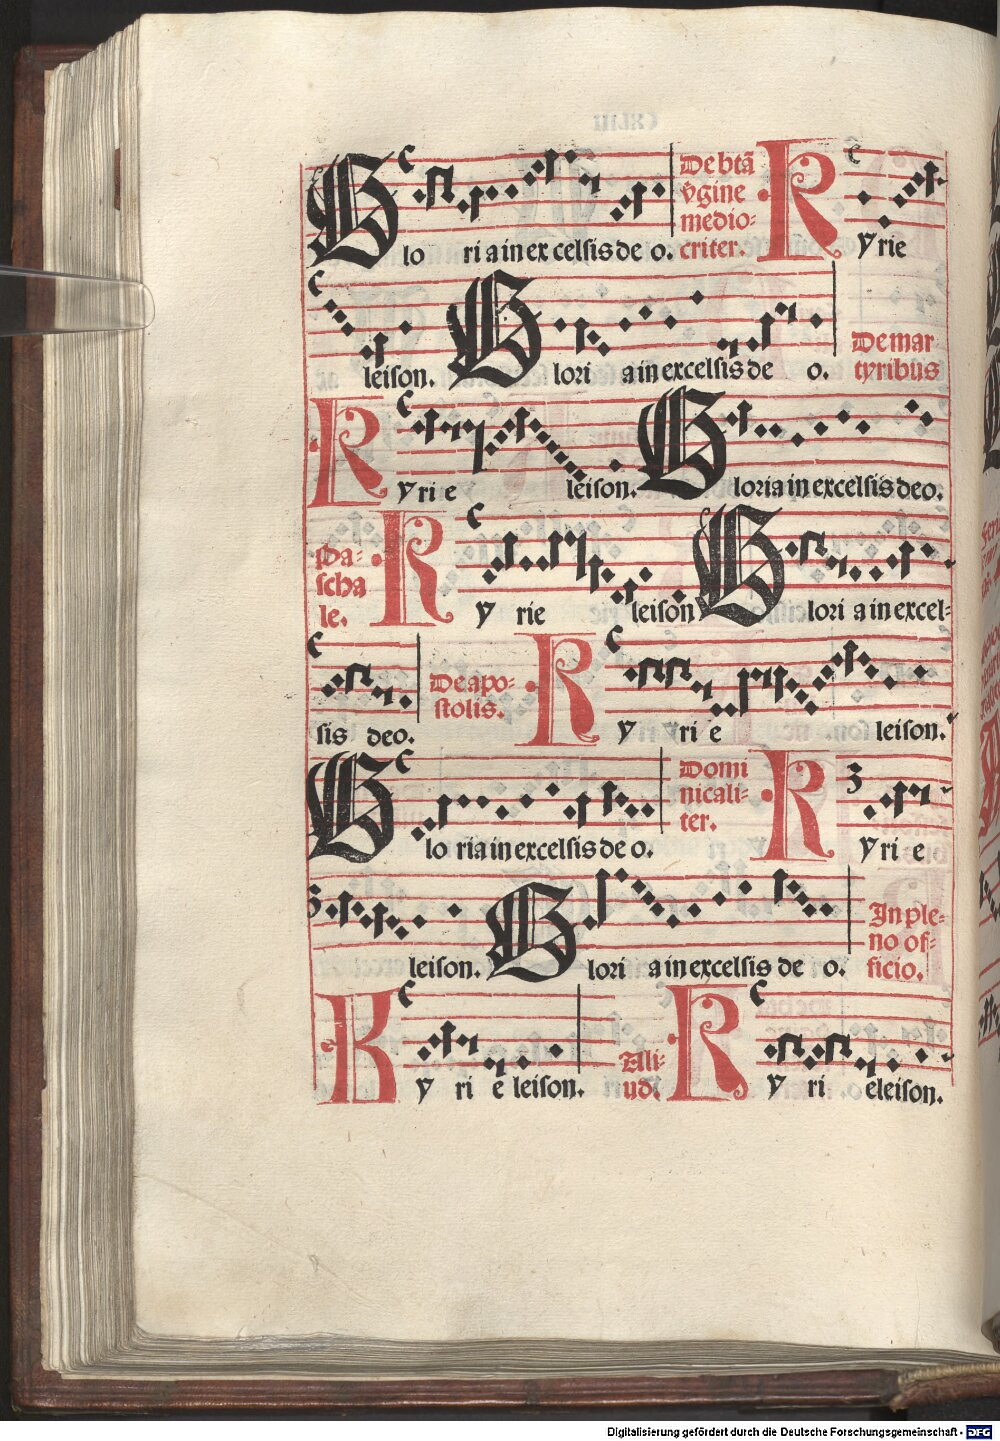 Gloria in excelsis deo. De btã v̾gine medio-criter. Kyrie
leison. Gloria in excelsis deo. De martyribus
Kyrie leison. Gloria in excelsis deo.
Paschale. Kyrie leison Gloria in excel-
sis deo. De apo-stolis. Kyrie leison.
Gloria in excelsis deo. Dominicali-ter. Kyrie
leison. Gloria in excelsis deo. In ple-no of-ficio.
Kyrie leison. Ali-ud. Kyrie eleison.
Digitalisierung gefördert durch die Deutsche Forschungsgemeinschaft - DFG